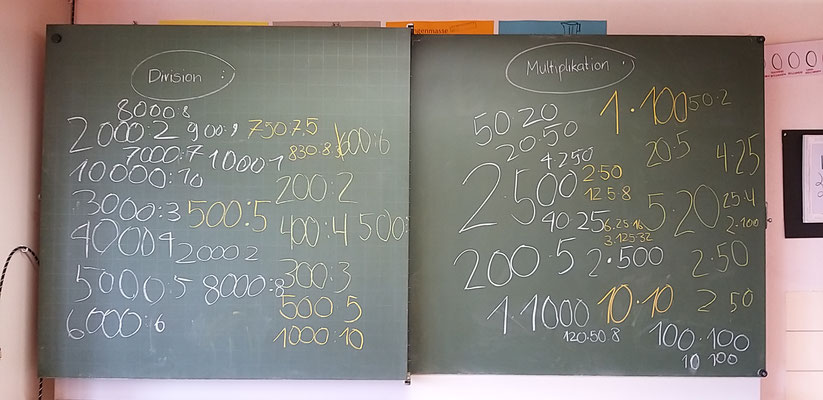 ngenmasse
Division :
8000:8
2000:2 900:9 750:7.5
7000:7 10000:1 830:8.3 600:6
10000:10
200:2
3000:3 500:5
400:4 500:
4000 4 2000 2
300:3
5000:5 8000:8
500 5
6000:6
1000:10
Multiplikation ·
50·20
1·100 50·2
20·50
20·5
4·250
4·25
2·500
2·50
12.5·8
5·20
25·4
2·100
40·25
200·5
2·500
2·50
1·1000
10·10
2 50
120·50·8
100·100
10 100